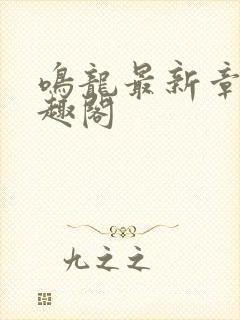 鳴龍最新章
趣閣
九之之